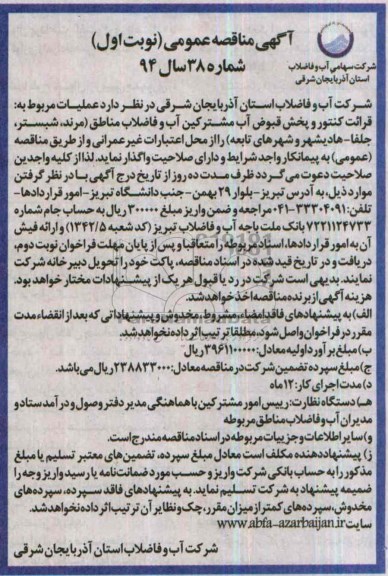 آگهی مناقصه عمومی (نوبت اول)
شماره ۳۸ سال ۹۴
شرکت سهامی آب و فاضلاب
استان آذربایجان شرقی
شرکت آب و فاضلاب استان آذربایجان شرقی در نظر دارد عملیات مربوط به:
قرائت کنتور و پخش قبوض آب مشترکین آب و فاضلاب مناطق (مرند، شبستر،
جلفا-هادیشهر و شهرهای تابعه) را از محل اعتبارات غیرعمرانی و از طریق مناقصه
(عمومی) به پیمانکار واجد شرایط و دارای صلاحیت واگذار نماید. لذا از کلیه واجدین
صلاحیت دعوت می‌گردد ظرف مدت ده روز از تاریخ درج آگهی با در نظر گرفتن
موارد ذیل، به آدرس تبریز-بلوار ۲۹ بهمن-جنب دانشگاه تبریز-امور قراردادها-
تلفن: ۳۳۳۰۴۰۹۱-۰۴۱ مراجعه و ضمن واریز مبلغ ۳۰۰۰۰۰ ریال به حساب جام شماره
۷۲۲۱۱۲۴۷۳۳ بانک ملت باجه آب و فاضلاب تبریز (کد شعبه ۱۳۴۲/۵) و ارائه فیش
آن به امور قراردادها، اسناد مربوطه را متعاقبا و پس از پایان مهلت فراخوان نوبت دوم،
دریافت و در تاریخ قید شده در اسناد مناقصه، پاکت خود را تحویل دبیرخانه شرکت
نمایند. بدیهی است شرکت در رد یا قبول هر یک از پیشنهادات مختار خواهد بود.
هزینه آگهی از برنده مناقصه اخذ خواهد شد.
الف) به پیشنهادهای فاقد امضاء، مشروط، مخدوش و پیشنهاداتی که بعد از انقضاء مدت
مقرر در فراخوان واصل شود، مطلقا ترتیب اثر داده نخواهد شد.
ب) مبلغ برآورد اولیه معادل: ۳۹۶۱۱۰۰۰۰۰ ریال
ج) مبلغ سپرده تضمین شرکت در مناقصه معادل: ۲۳۸۸۳۳۰۰۰ ریال می‌باشد.
د) مدت اجرای کار: ۱۲ ماه
هـ) دستگاه نظارت: رییس امور مشترکین با هماهنگی مدیر دفتر وصول و درآمد ستاد و
مدیران آب و فاضلاب مناطق مربوطه
و) سایر اطلاعات و جزییات مربوطه در اسناد مناقصه مندرج است.
ز) پیشنهاددهنده مکلف است معادل مبلغ سپرده، تضمین‌های معتبر تسلیم یا مبلغ
مذکور را به حساب بانکی شرکت واریز و حسب مورد ضمانت‌نامه یا رسید واریز وجه را
ضمیمه پیشنهاد به شرکت تسلیم نماید. به پیشنهادهای فاقد سپرده، سپرده‌های
مخدوش، سپرده‌های کمتر از میزان مقرر، چک و نظایر آن ترتیب اثر داده نخواهد شد.
سایت www.abfa-azarbaijan.ir
شرکت آب و فاضلاب استان آذربایجان شرقی